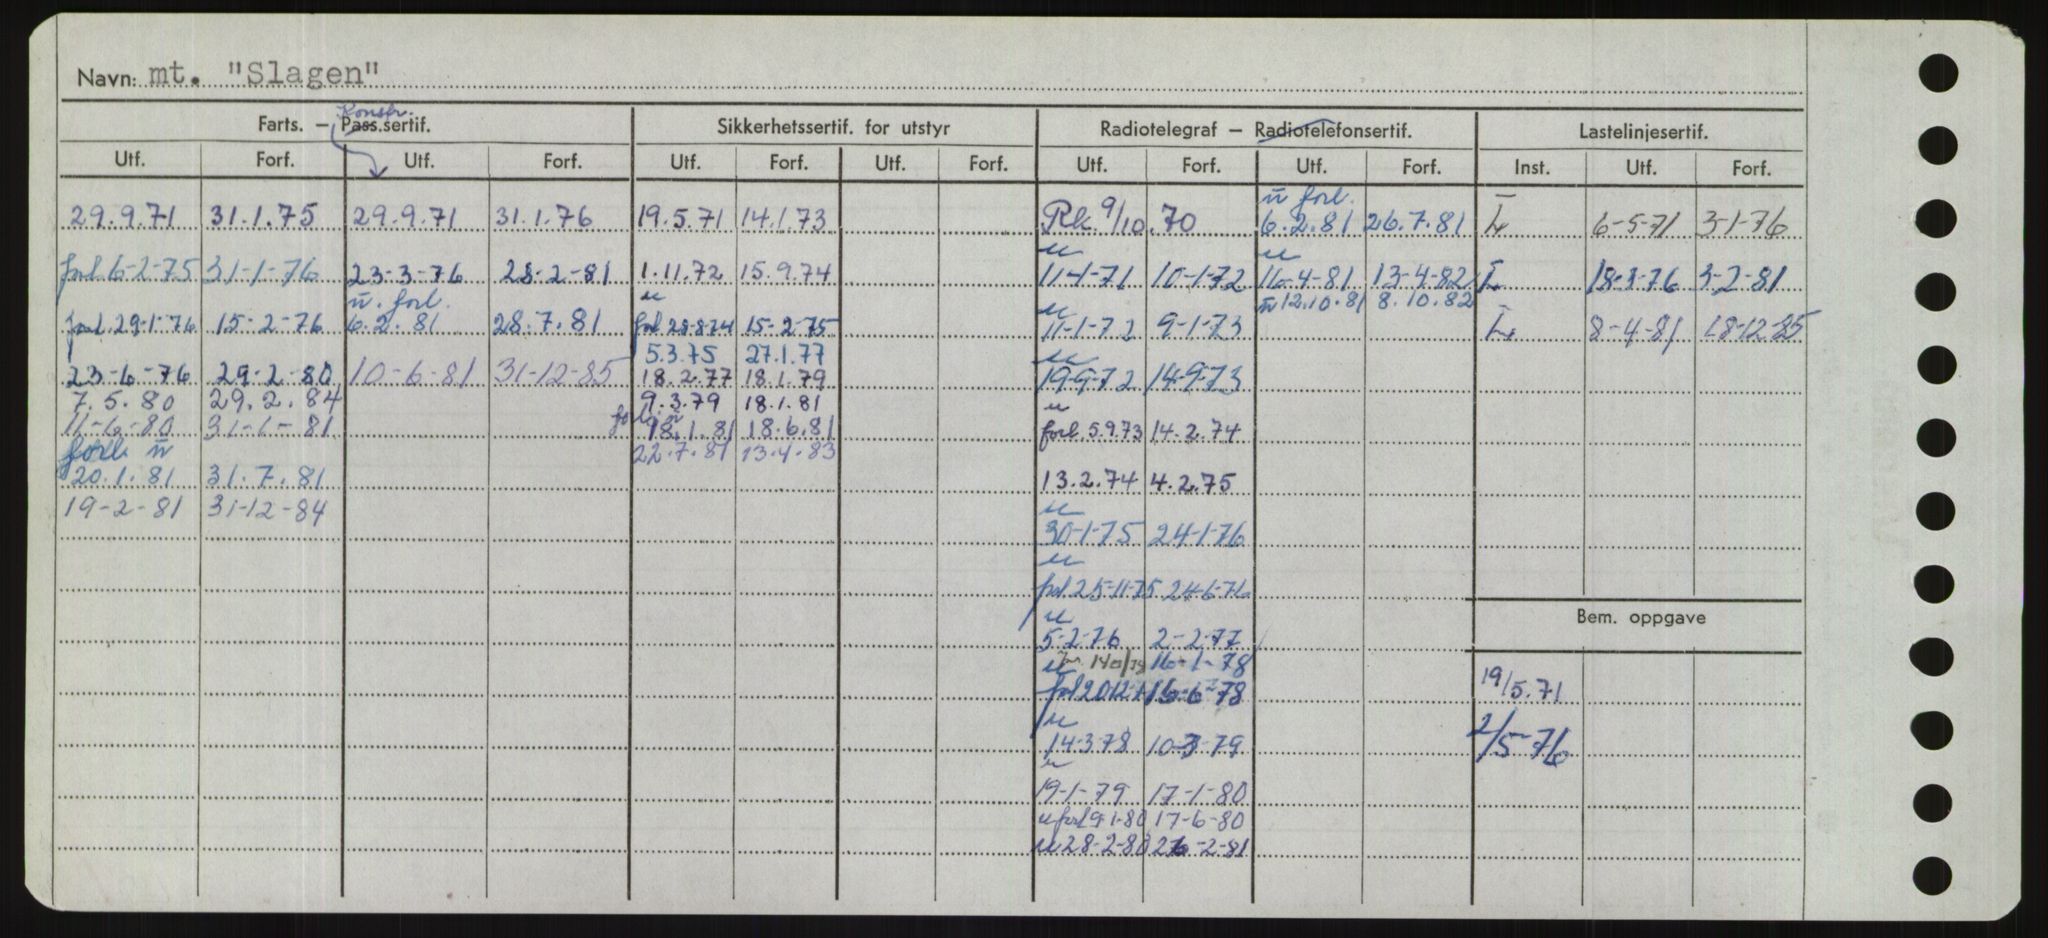 Navn: mt. "Slagen"
Konstr.
Farts. — Pass.sertif. Sikkerhetssertif. for utstyr Radiotelegraf — Radiotelefonsertif. Lastelinjesertif.
Utf. Forf. Utf. Forf. Utf. Forf. Utf. Forf. Utf. Forf. Utf. Forf. Inst. Utf. Forf.
ū forl.
29.9.71 31.1.75 29.9.71 31.1.76 19.5.71 14.1.73 9/10.70 6.2.81 26.7.81 6-5-71 3-1-76
u u
forl. 6-2-75 31-1-76 23-3-76 28-2-81 1.11.72 15.9.74 11-1-71 10-1-72 16-4-81 13-4-82 18-3-76 3-2-81
ū. forl. u u ū 12.10.81 8.10.82
forl 29-1-76 15-2-76 6.2.81 28.7.81 forl 28.8.74 15-2-75 11-1-72 9-1-73 8-4-81 18-12-85
5.3.75 27.1.77 u
23-6-76 29-2-80 10-6-81 31-12-85 18.2.77 18.1.79 19-9-72 14-9-73
7.5.80 29.2.84 9.3.79 18.1.81 u
11-6-80 31-1-81 forl. ū 18.1.81 18.6.81 forl. 5.9.73 14.2.74
forl. ū 22.7.81 13.4.83
20.1.81 31.7.81 13.2.74 4.2.75
19-2-81 31-12-84 u
30-1-75 24-1-76
u
forl. 25-11-75 24-6-76
Bem. oppgave
u
5-2-76 2-2-77
u 16-1-78
forl 20 12 16-6-78 19/5.71
u
14-3-78 10-3-79 2/5-76
u
19-1-79 17-1-80
u forl 9-1-80 17-6-80
u 28-2-80 26-2-81